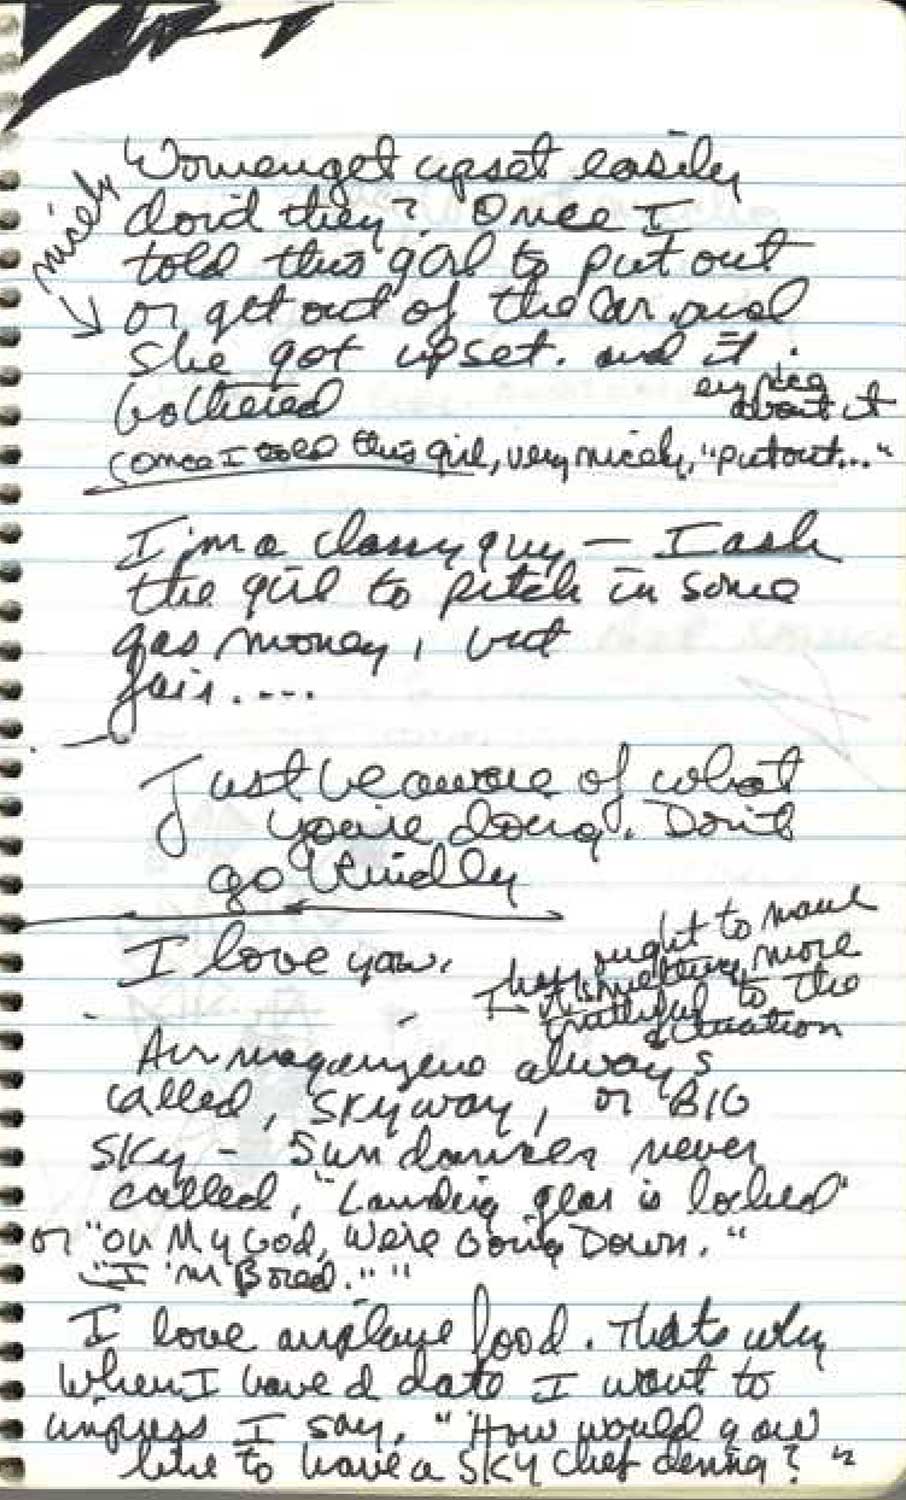 Women get upset easily
nicely
don't they? Once I
told this girl to put out
or get out of the car, and
she got upset. and it
bothered
about it
(once I told this girl, very nicely, "put out..."
I'm a classy guy — I ask
the girl to pitch in some
gas money, but
fair....
Just be aware of what
you're doing. Don't
go blindly
I love you.
they ought to name
it something more
truthful to the
situation
Air magazine always
called, SKYWAY, or BIG
SKY - Sundancer never
called, "Landing gear is locked"
or "Oh My God, We're Going Down."
"I'm Bored.""
I love airplane food. That's why
when I have a date I want to
impress I say, "How would you
like to have a SKY Chef dinner?"